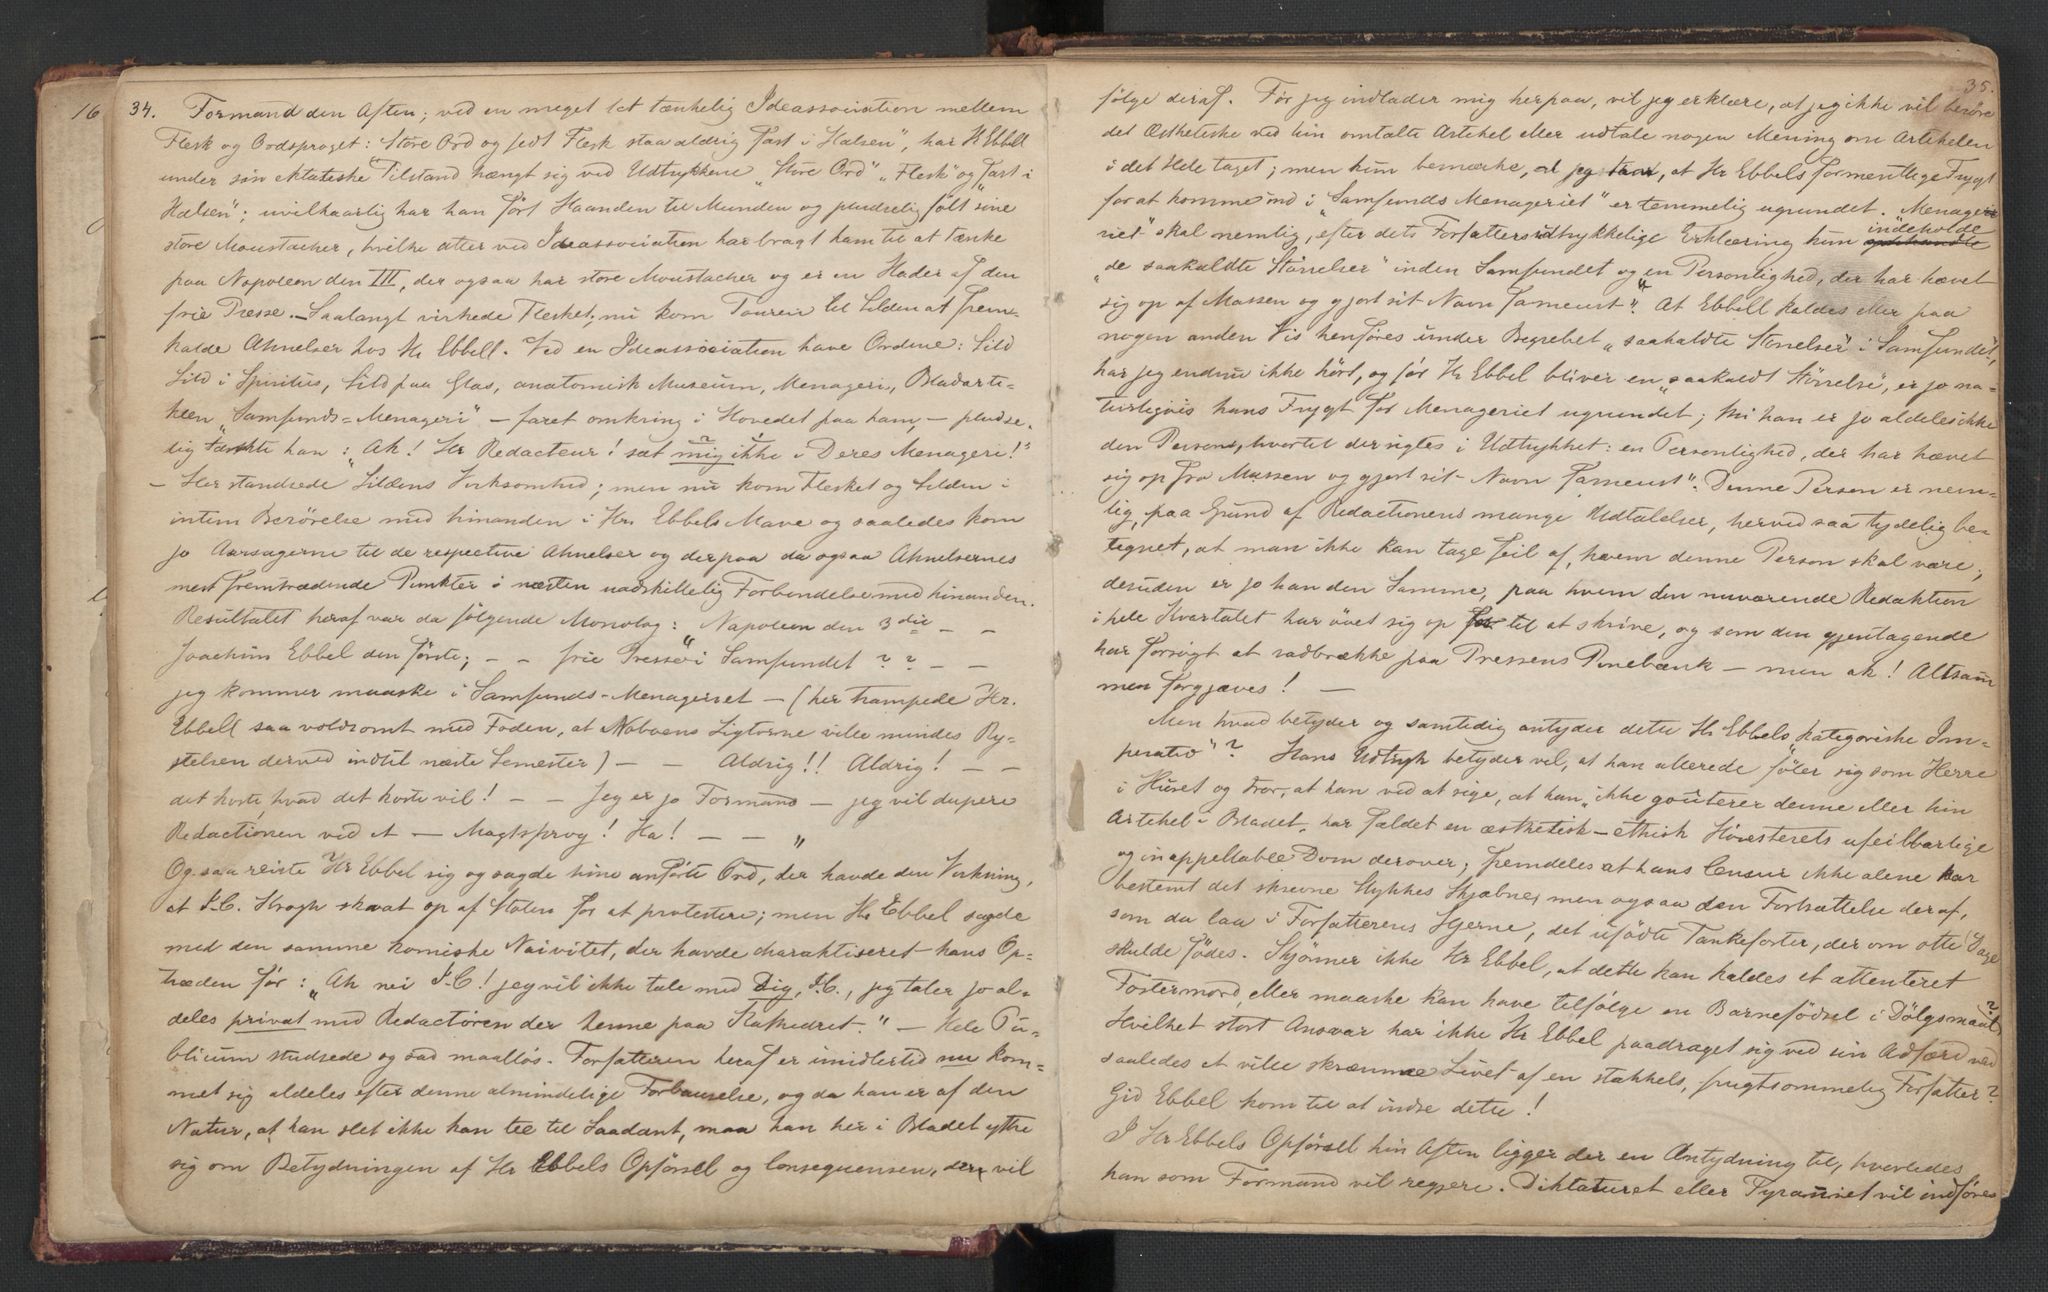 16
34. Formand den Aften; ved en meget let tænkelig Ideassociation mellem
Flesk og Ordsproget: "Store Ord og fedt Flesk staa aldrig fast i Halsen", har Hr Ebbell
under sin ektatiske Tilstand hængt sig ved Udtrykkene "Store Ord" "Flesk" og "fast i
Halsen"; uvilkaarlig har han ført Haanden til Munden og pludselig følt sine
store Moustacher, hvilke atter ved Ideassociation har bragt ham til at tænke
paa Napoleon den III, der ogsaa har store Moustacher og er en Hader af den
frie Presse. – Saalangt virkede Flesket; nu kom Touren til Silden at frem-
kalde Ahnelser hos Hr Ebbell. Ved en Ideassociation have Ordene: Sild
Sild i Spiritus, Sild paa Glas, anatomisk Museum, Menageri, Bladarti-
kelen "Samfunds=Menageri" – faret omkring i Hovedet paa ham, – pludse-
lig tænkte han: "Ak! Hr Redacteur! sæt mig ikke i Deres Menageri!"
– Her standsede Sildens Virksomhed; men nu kom Flesket og Silden i
intim Berørelse med hinanden i Hr. Ebbels Mave og saaledes kom
jo Aarsagerne til de respective Ahnelser og derpaa da ogsaa Ahnelsernes
mest fremtrædende Punkter i næsten uadskillelig Forbindelse med hinanden.
Resultatet heraf var da følgende Monolog: "Napoleon den 3die – –
Joachim Ebbel den første; – – frie Presse i Samfundet ? ? – –
jeg kommer maaske i Samfunds-Menageriet – (her trampede Hr.
Ebbell saa voldsomt med Foden, at Naboens Ligtorne ville mindes Ry-
stelsen derved indtil næste Semester) – – Aldrig!! Aldrig! – –
det koste hvad det koste vil! – – Jeg er jo Formand – jeg vil dupere
Redactionen ved et – Magtsprog! Ha! – – "
Og saa reiste Hr Ebbel sig og sagde hine anførte Ord, der havde den Virkning,
at I.C. Krogh skvat op af Stolen for at protestere; men Hr Ebbel sagde
med den samme komiske Naivitet, der havde charaktiseret hans Op-
træden før: "Ak nei I.C! jeg vil ikke tale med Dig, I.C., jeg taler jo al-
deles privat med Redactøren der henne paa Kathedret." – Hele Pu-
blicum studsede og sad maalløs. Forfatteren heraf er imidlertid nu kom-
met sig aldeles efter denne almindelige Forbauselse, og da han er af den
Natur, at han slet ikke kan tie til Saadant, maa han her i Bladet yttre
sig om Betydningen af Hr Ebbels Opførsel og Consequensen, der vil
35.
følge deraf. Før jeg indlader mig herpaa, vil jeg erklære, at jeg ikke vil berøre
det Æsthetiske ved hin omtalte Artikel eller udtale nogen Mening om Artikelen
i det Hele taget; men kun bemærke, at jeg troer, at Hr Ebbels formentlige Frygt
for at komme ind i "Samfunds Menageriet" er temmelig ugrundet. "Menage-
riet" skal nemlig, efter dets Forfatters udtrykkelige Erklæring kun indeholde
"de saakaldte Størrelser" inden Samfundet og "en Personlighed, der har hævet
sig op af Massen og gjort sit Navn berømt". At Ebbell kaldes eller paa
nogen anden Vis henføres under Begrebet "saakaldte Størrelser" i Samfundet,
har jeg endnu ikke hørt, og før Hr Ebbel bliver en "saakaldt Størrelse", er jo na-
turligvis hans Frygt for Menageriet ugrundet; thi han er jo aldeles ikke
den Person, hvortil der sigtes i Udtrykket: en Personlighed, der har hævet
sig op fra Massen og gjort sit Navn berømt". Denne Person er nem-
lig, paa Grund af Redactionens mange Udtalelser, herved saa tydelig be-
tegnet, at man ikke kan tage feil af, hvem denne Person skal være;
desuden er jo han den Samme, paa hvem den nuværende Redaktion
i hele Kvartalet har øvet sig op til at skrive, og som den gjentagende
har forsøgt at radbrække paa Pressens Pinebænk – men ak! Altsam-
men forgjæves! –
Men hvad betyder og samtidig antyder dette Hr Ebbels "kategoriske Im-
perativ"? Hans Udtryk betyder vel, at han allerede føler sig som Herre
i Huset og tror, at han ved at sige, at han "ikke goûterer denne eller hin
Artikel i Bladet, har fældet en æsthetisk–ethisk Høiesterets ufeilbarlige
og inappellable Dom derover; fremdeles at hans Censur ikke alene har
bestemt det skrevne Stykkes Skjæbne, men ogsaa den Fortsættelse deraf,
som da laa i Forfatterens Hjerne, det ufødte Tankefoster, der om otte Dage
skulde fødes. Skjønner ikke Hr Ebbel, at dette kan kaldes et attenteret
Fostermord, eller maaske kan have tilfølge en Barnefødsel i Dølgsmaal?
Hvilket stort Ansvar har ikke Hr Ebbel paadraget sig ved sin Adfærd ved
saaledes et ville skræmme Livet af en stakkels, frugtsommelig Forfatter?
Gid Ebbel kom til at indse dette!
I Hr Ebbels Opførsel hin Aften ligger der en Antydning til, hvorledes
han som Formand vil regjere. Diktaturet eller Tyranniet vil indføres